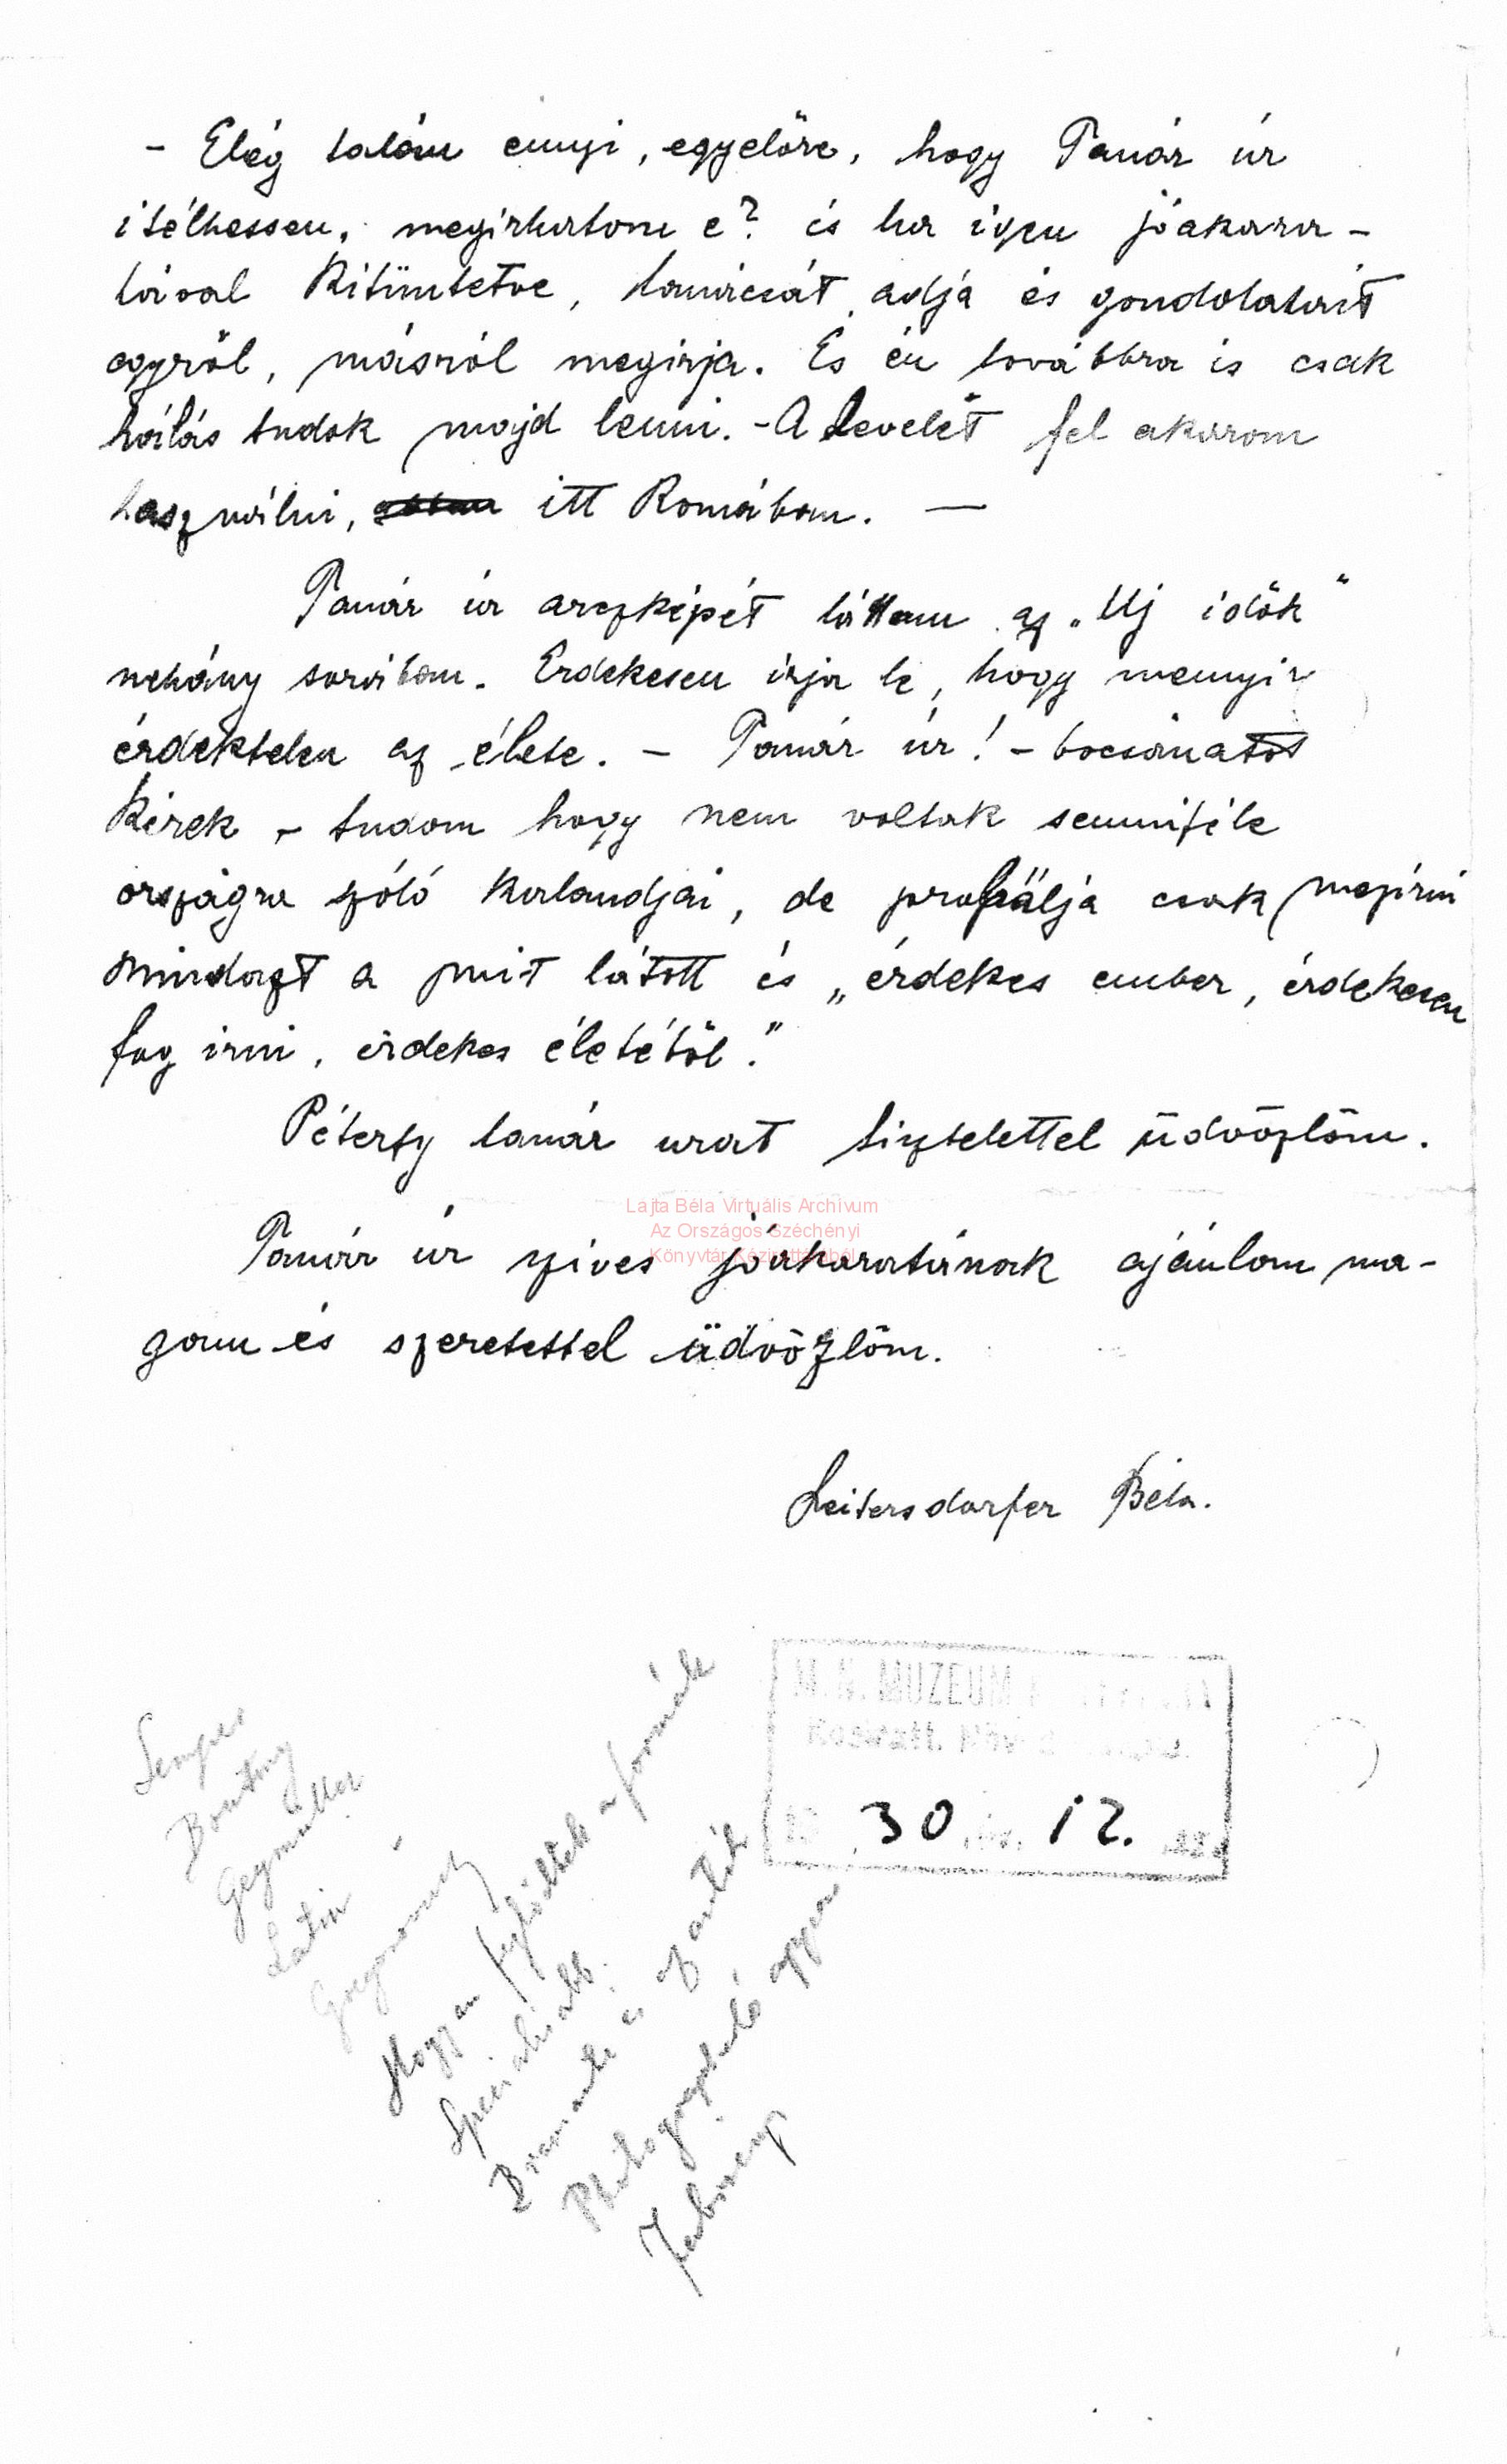 - Elég talán ennyi, egyelőre, hogy Tanár úr
itélhessen, megirhatom e? és ha igen jóakara-
tával kitüntetve, tanácsát adja és gondolatait
egyről, másról megirja. És én továbbra is csak
hálás tudok majd lenni. - A levelét fel akarom
használni, itt Romában. —
Tanár úr arczképét láttam az „Uj idők"
nehány sorában. Erdekesen irja le, hogy mennyir
érdektelen az élete. - Tanár úr! - bocsánatot
kérek - tudom hogy nem voltak semmiféle
országra szóló kalandjai, de probálja csak megirni
mindazt a mit látott és „érdekes ember, érdekesen
fog irni, érdekes életétöl."
Péterfy tanár urat tisztelettel üdvözlöm.
Lajta Béla Virtuális Archívum
Az Országos Széchényi
Könyvtár Kézirattárából
Tanár úr szives jóakaratának ajánlom ma-
gam és szeretettel üdvözlöm.
Leitersdorfer Béla.
M. N. MUZEUM
30 12.
Semper
Geymüller
Latin
Hogyan fejlődtek a formák
Speciálisabb.
Bramante és az antik